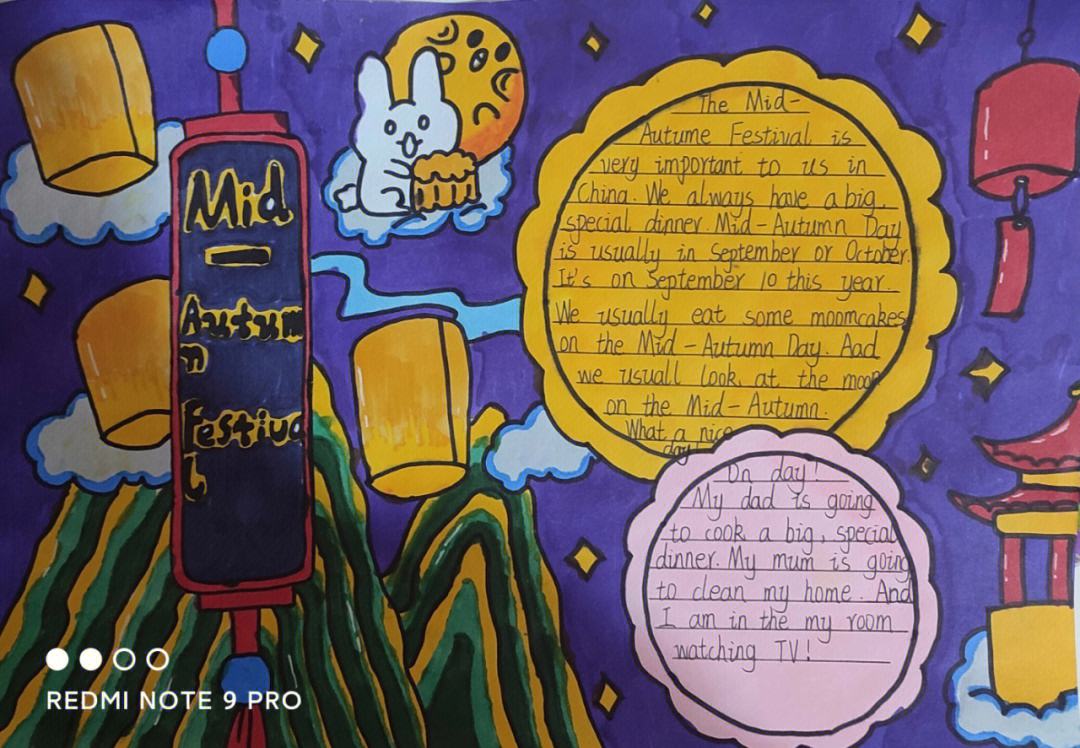 Mid
-
Autum
n
Festiva
l
The Mid-
Autume Festival is
very important to us in
China. We always have a big,
special dinner. Mid-Autumn Day
is usually in September or October.
It's on September 10 this year.
We usually eat some moomcakes
on the Mid-Autumn Day. Aad
we usuall look at the moon
on the Mid-Autumn.
What a nice
day!
On day!
My dad is going
to cook a big, special
dinner. My mum is going
to clean my home. And
I am in the my room
watching TV!
REDMI NOTE 9 PRO